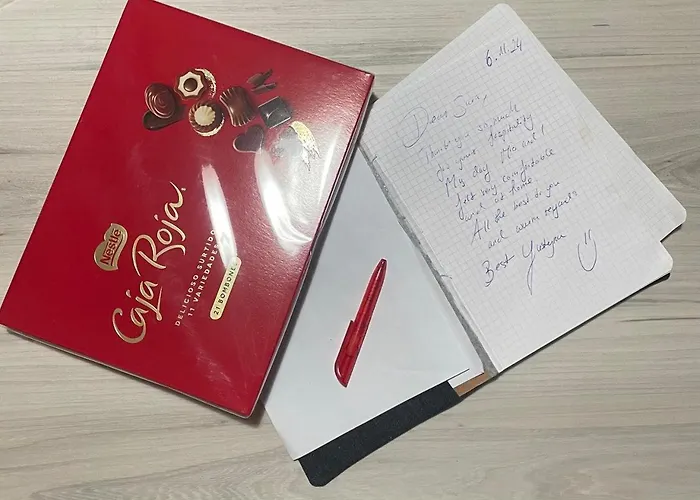 Nestlé
Caja Roja
DELICIOSO SURTIDO
11 VARIEDADES
21 BOMBONES
6.11.24
Dear
Thank you so much
for your hospitality
My dog Mia and I
felt very comfortable
and at home
All the best to you
and warm regards
Best